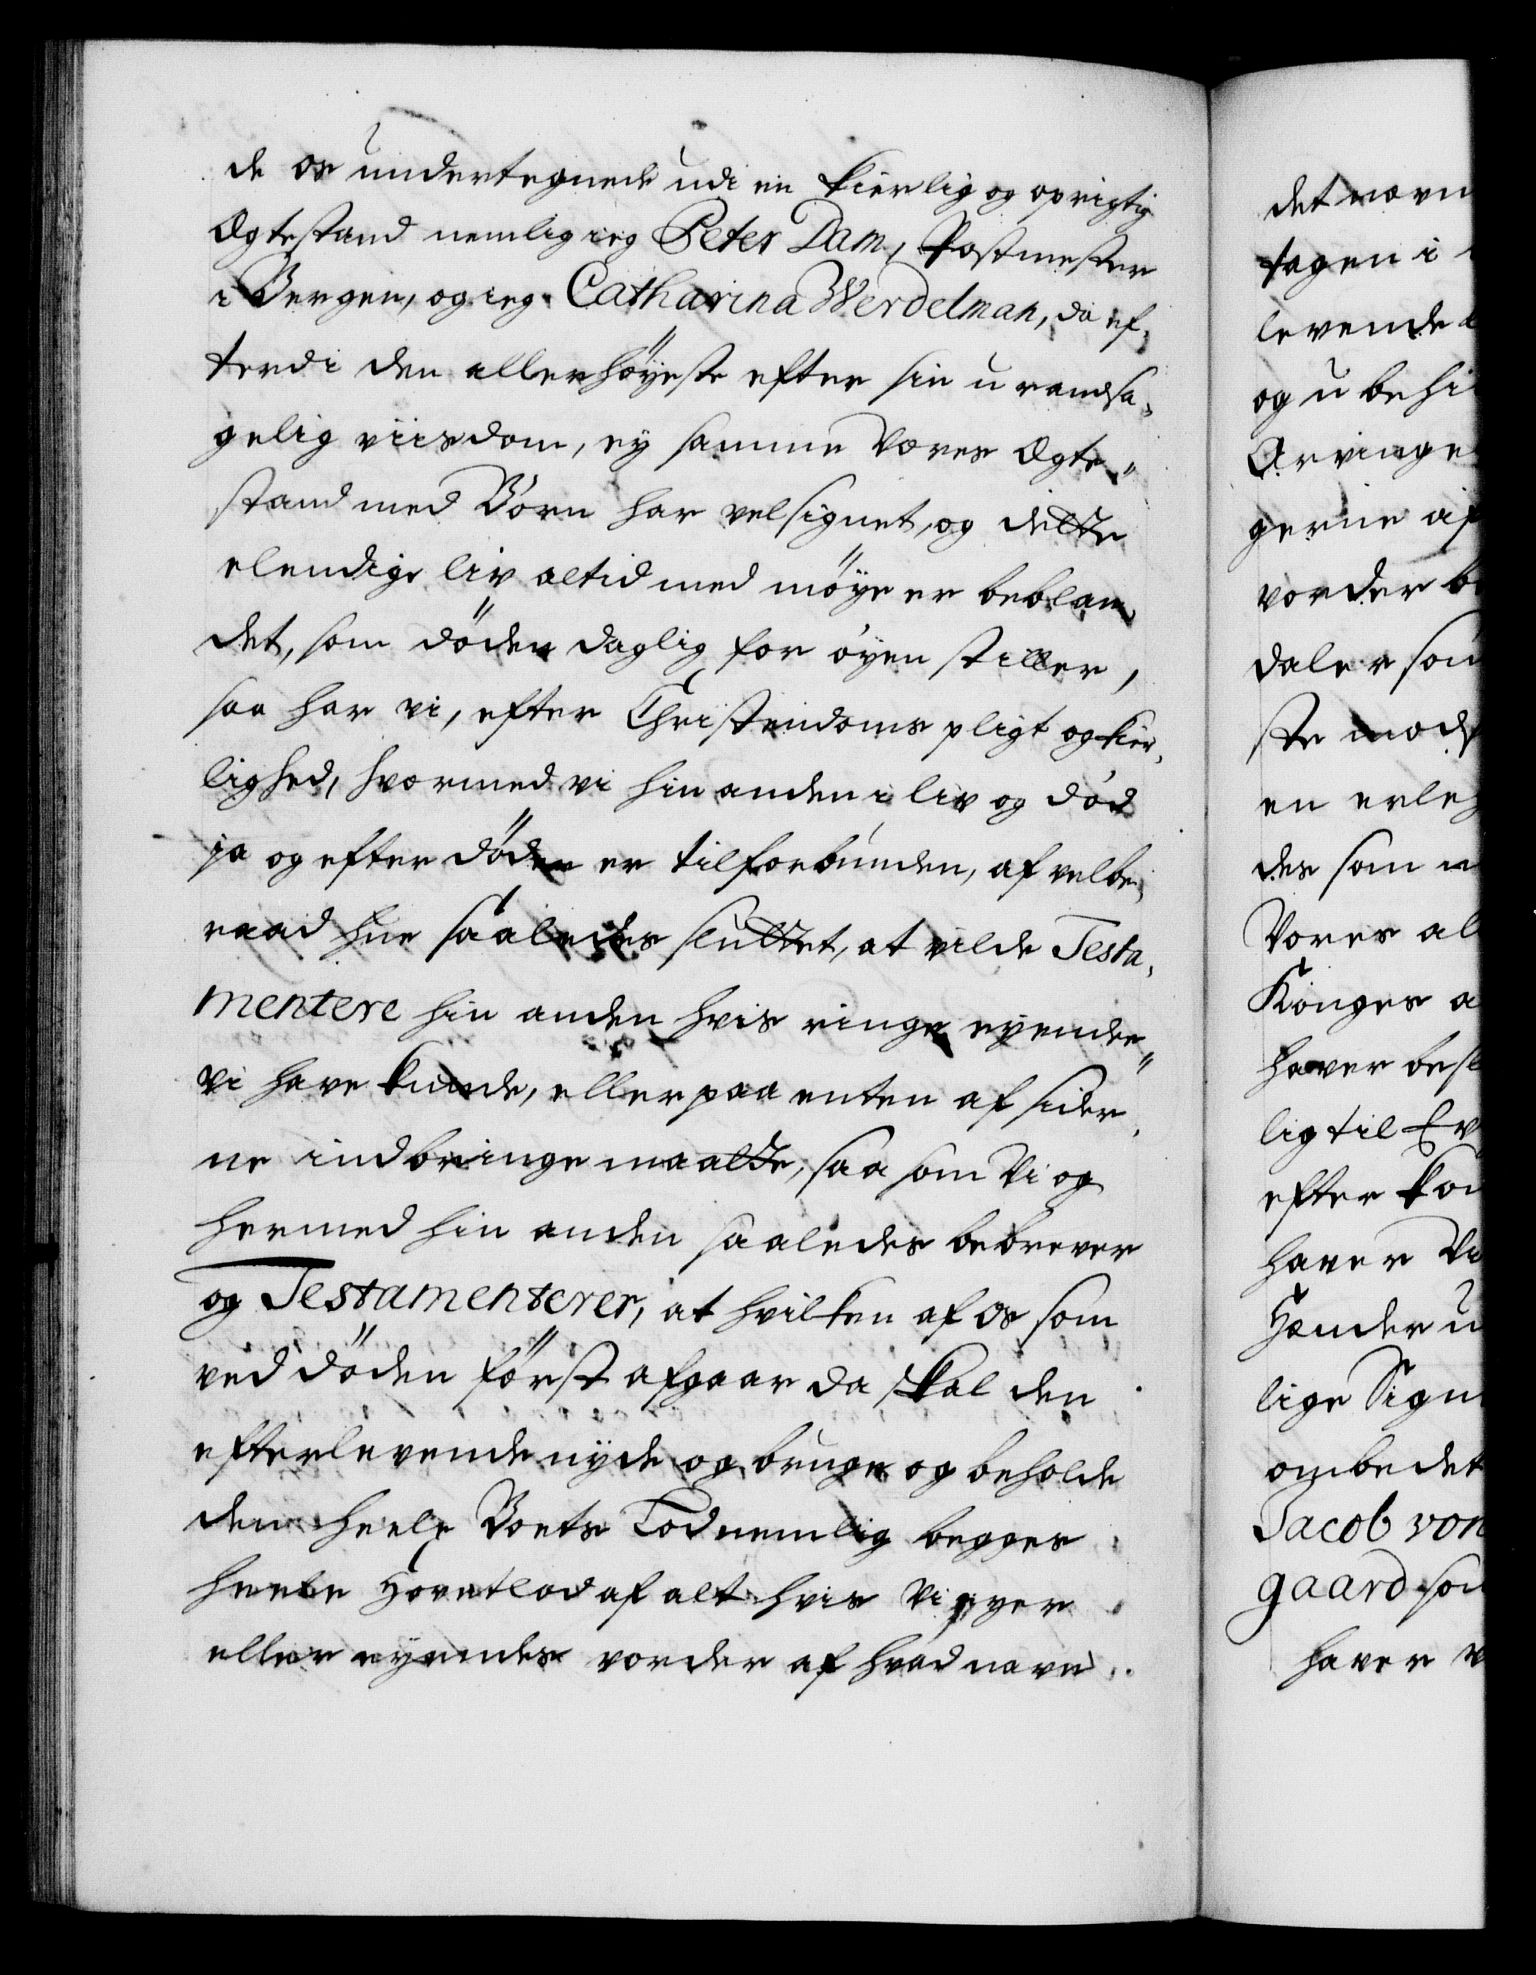 de os undertegnede udi en kierlig og oprigtig
Ægtestand nemlig ieg Peter Dam, Postmester
i Bergen, og ieg Catharina Werdelman, da ef-
terdi den allerhöyeste efter sin u randsa-
gelig viisdom, ey samme Vores Ægte-
stand med Börn har velsignet, og dette
elendige liv altid med möye er beblan-
det, som döden daglig for öyen stiller,
saa har vi, efter Christendoms pligt og kier-
lighed, hvormed vi hin anden i liv og död
ja og efter döden er tilforbunden, af velbe-
raad hue saaledes sluttet, at vilde Testa-
mentere hin anden hvis ringe eyendee
vi have kunde, eller paa enten af sider-
ne indbringe maatte, saa som Vi og
hermed hin anden saaledes bebrever
og Testamenterer, at hvilken af os som
ved döden först afgaar da skal den
efterlevende nyde og bruge og beholde
den heele Boets Lod nemlig begges
heele Hovetlod af alt hvis Vi eyer
eller eyendes vorder af hvad navn
det nævn
tagen i
levende
og u behi
Arvinge
gerne af
vorder be
daler som
ste mods
en erleg
des som
Vores al
Konges a
haver besl
lig til Ev
efter kom
haver Vi
Hænder u
lige Sign
ombedet
Jacob von
gaard som
haver v